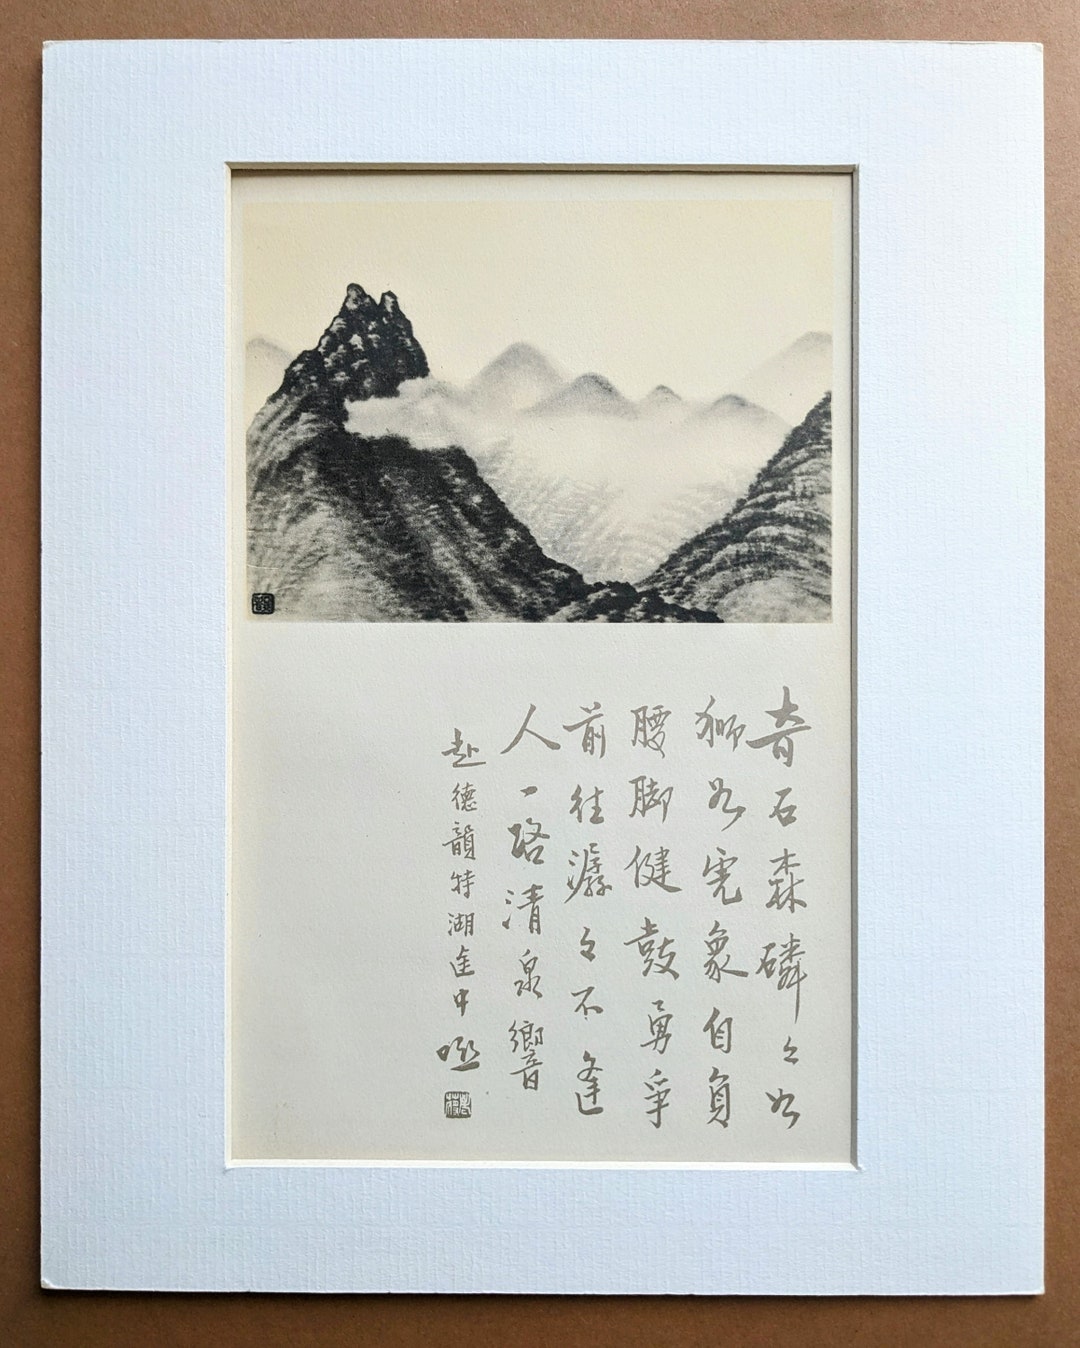 奇石森磷々如
獅如虎象自負
腰脚健鼓勇爭
前往潺々不逢
人一路清泉響
赴德韻特湖途中